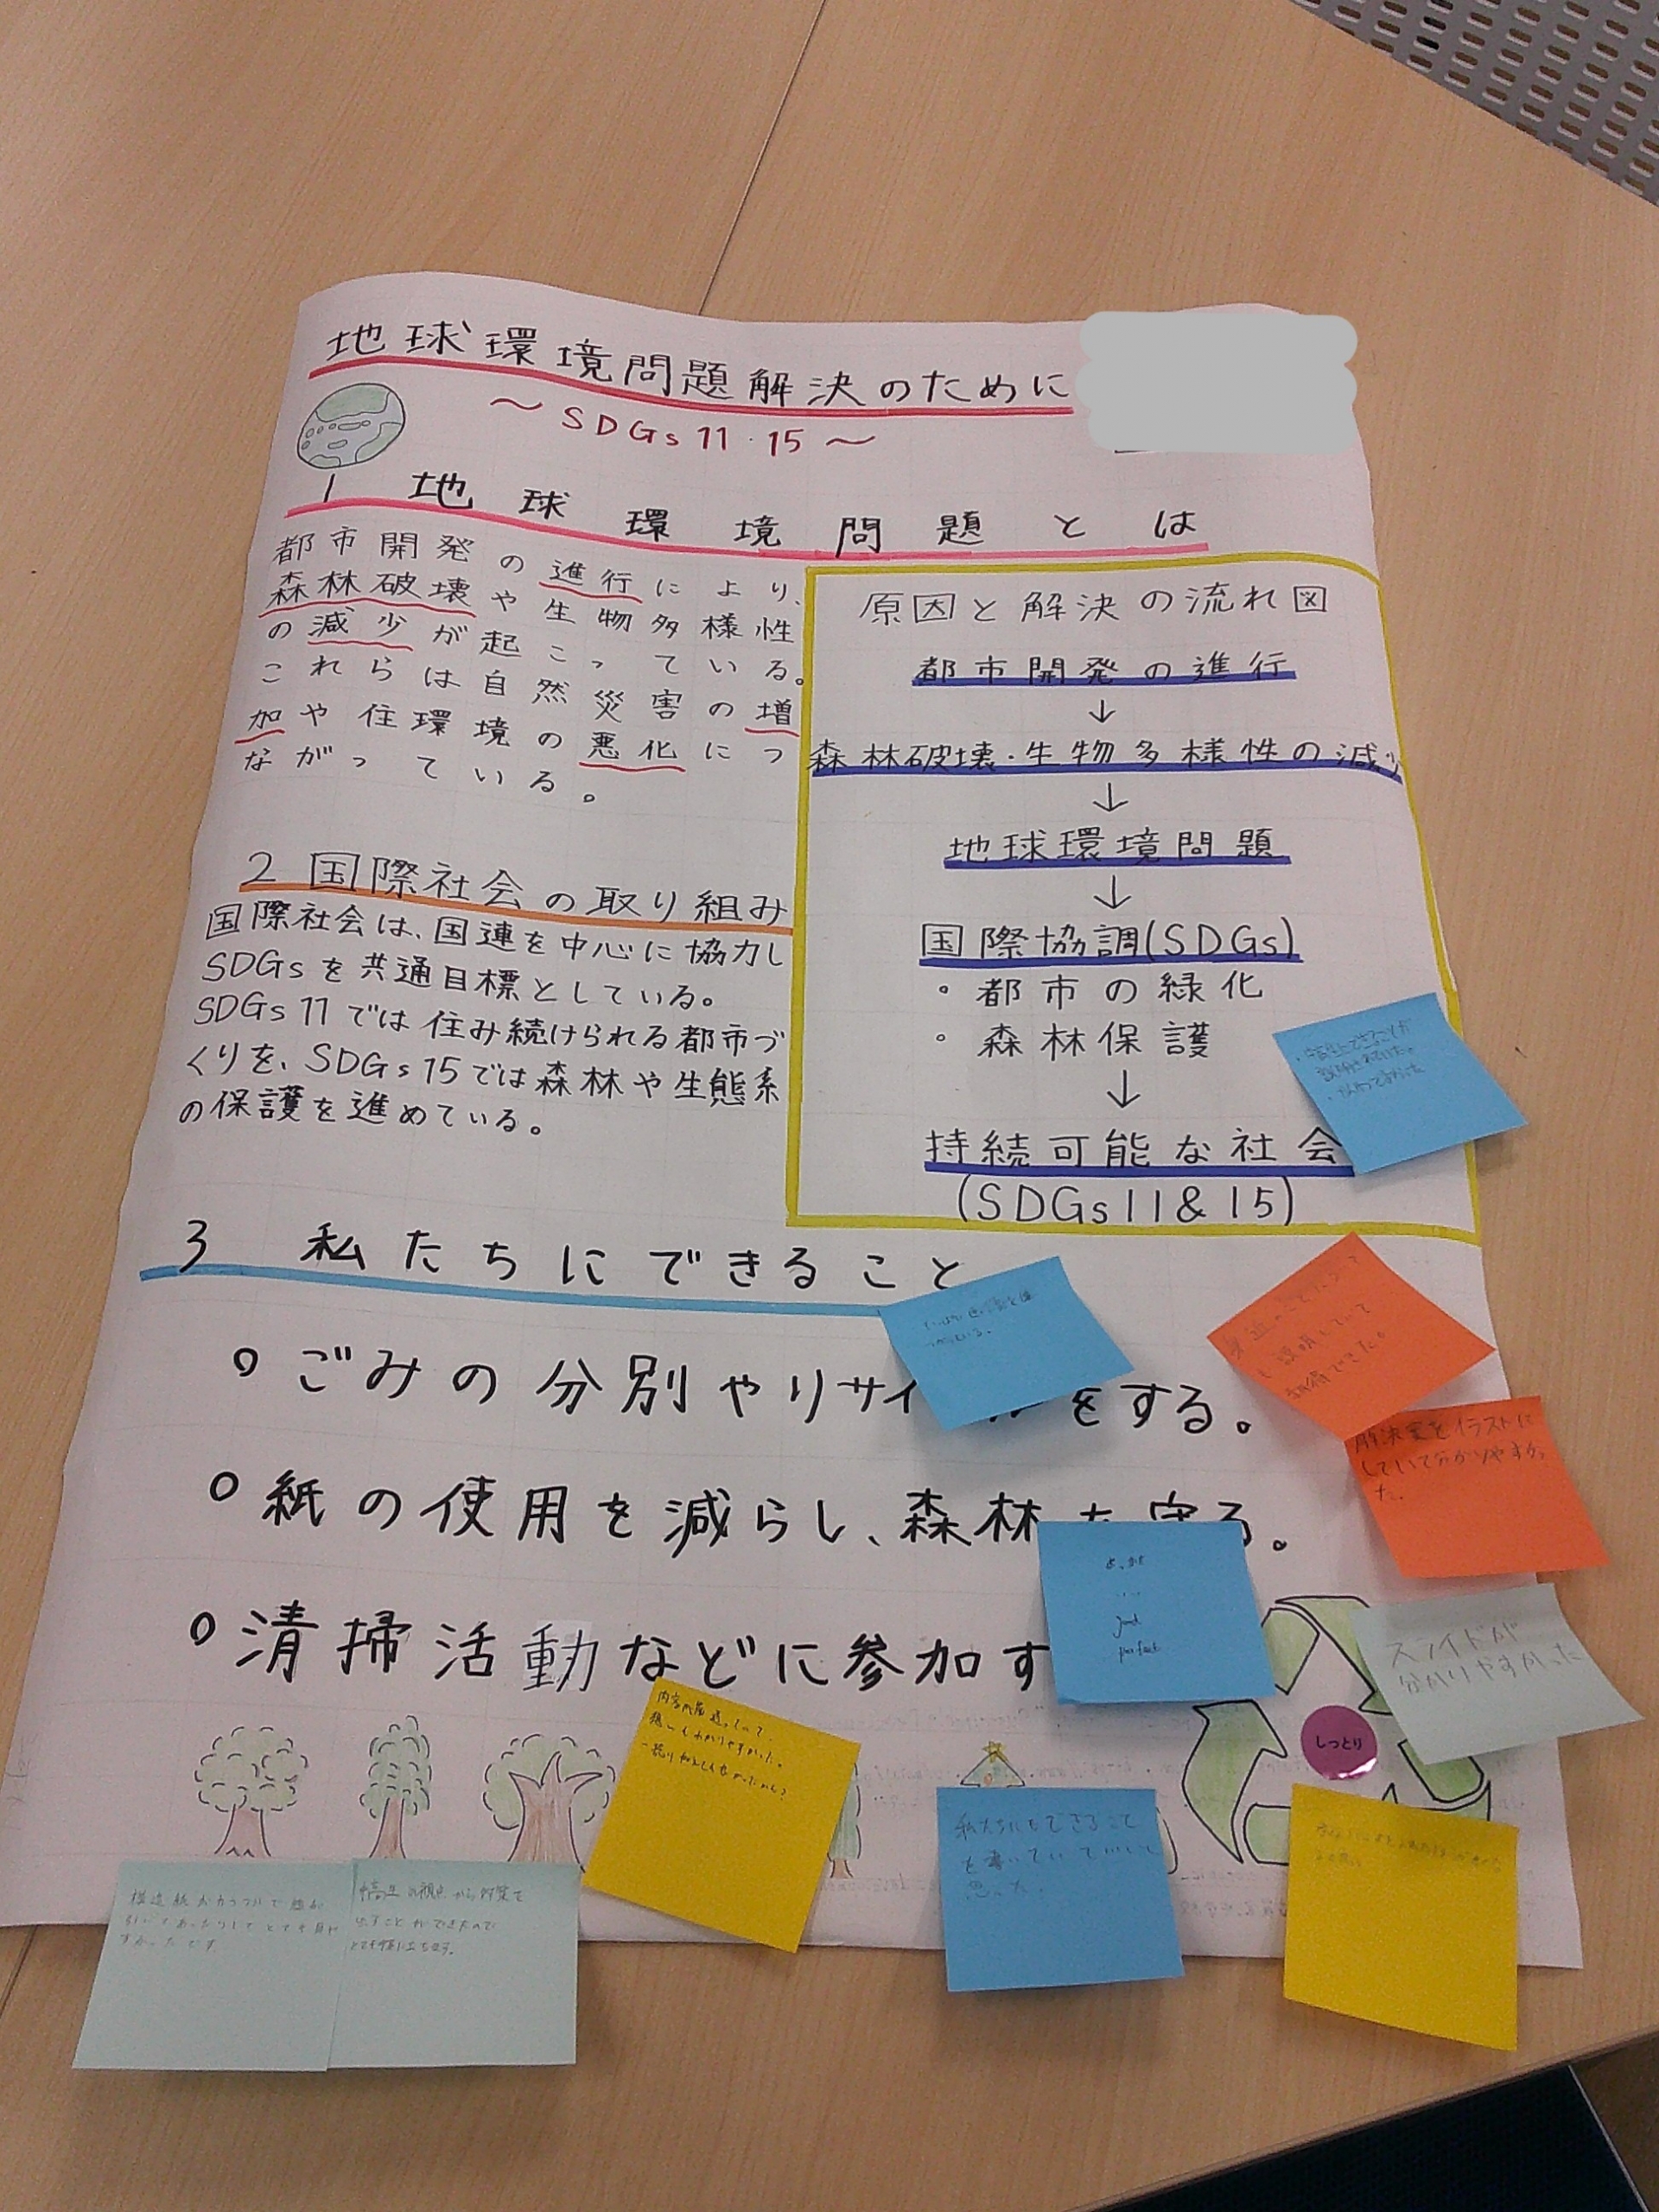 地球環境問題解決のために
～SDGs 11・15～
1 地球環境問題とは
都市開発の進行により、
森林破壊や生物多様性
の減少が起こっている。
これらは自然災害の増
加や住環境の悪化につ
ながっている。
2 国際社会の取り組み
国際社会は、国連を中心に協力し
SDGsを共通目標としている。
SDGs 11では住み続けられる都市づ
くりを、SDGs 15では森林や生態系
の保護を進めている。
原因と解決の流れ図
都市開発の進行
↓
森林破壊・生物多様性の減少
↓
地球環境問題
↓
国際協調(SDGs)
・都市の緑化
・森林保護
↓
持続可能な社会
(SDGs 11 & 15)
3 私たちにできること
○ごみの分別やリサイ をする。
○紙の使用を減らし、森林を守る。
○清掃活動などに参加す
解決案をイラストに
していて分かりやすかっ
た。
just
perfect
スライドが
分かりやすかった
しっとり
私たちにもできること
を書いていていいと
思った。
中高生の視点から対策を